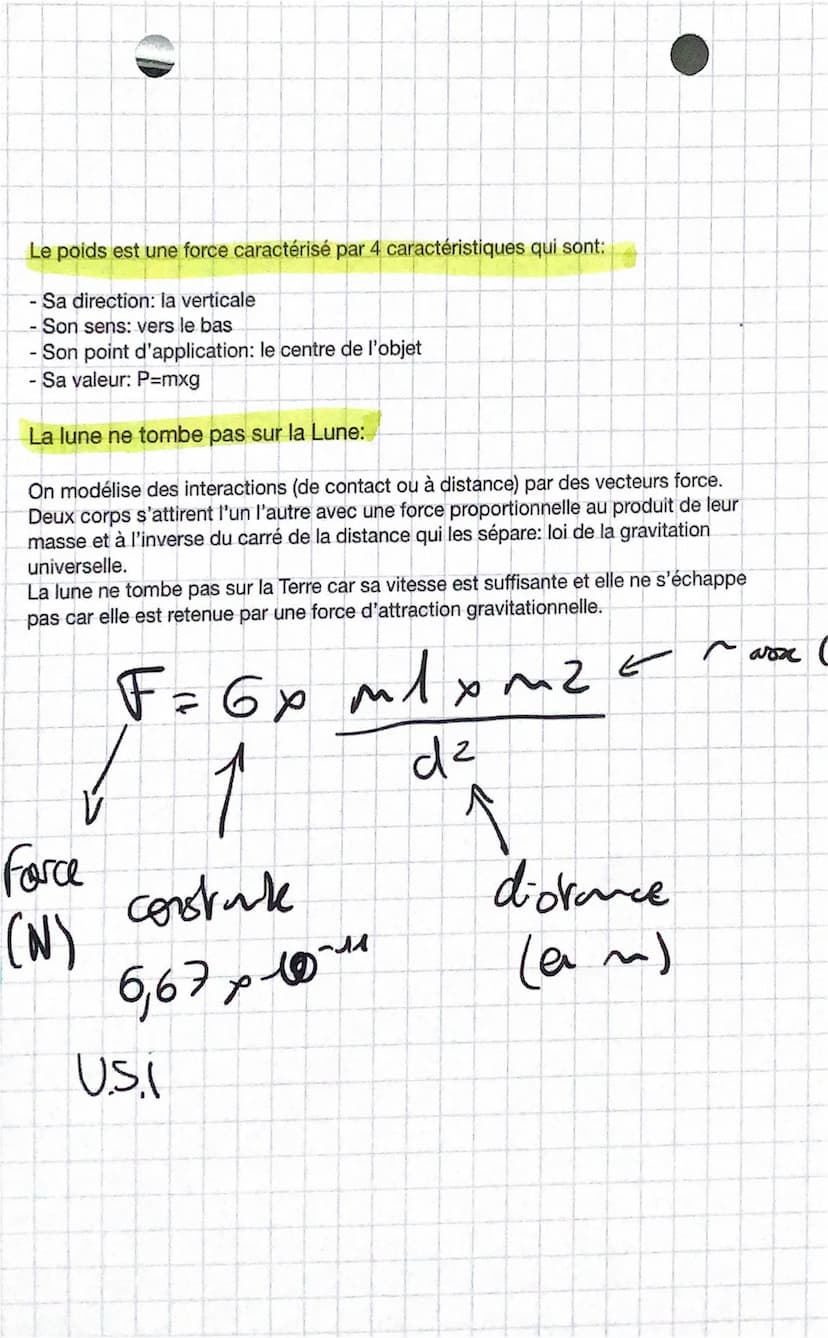 Le poids est une force caractérisé par 4 caractéristiques qui sont:
- Sa direction: la verticale
- Son sens: vers le bas
- Son point d'application: le centre de l'objet
- Sa valeur: P=mxg
La lune ne tombe pas sur la Lune:
On modélise des interactions (de contact ou à distance) par des vecteurs force.
Deux corps s'attirent l'un l'autre avec une force proportionnelle au produit de leur
masse et à l'inverse du carré de la distance qui les sépare: loi de la gravitation
universelle.
La lune ne tombe pas sur la Terre car sa vitesse est suffisante et elle ne s'échappe
pas car elle est retenue par une force d'attraction gravitationnelle.
F = G x m1 x m2 ←
d²
Force
(N)
constante
6,67 x 10⁻¹¹
U.S.i
distance
(en m)